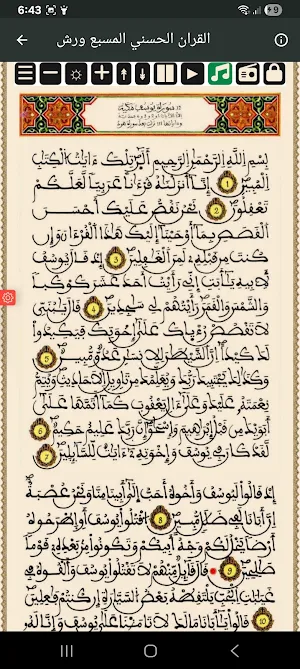 6:43
9
القران الحسني المسبع ورش
بِسْمِ اللَّهِ الرَّحْمَٰنِ الرَّحِيمِ أَلَٓر تِلْكَ ءَايَٰتُ الْكِتَٰبِ
الْمُبِينِ 1 إِنَّآ أَنزَلْنَٰهُ قُرْءَٰناً عَرَبِيّاً لَّعَلَّكُمْ
تَعْقِلُونَ 2 نَحْنُ نَقُصُّ عَلَيْكَ أَحْسَنَ
الْقَصَصِ بِمَآ أَوْحَيْنَآ إِلَيْكَ هَٰذَا الْقُرْءَانَ وَإِن
كُنتَ مِن قَبْلِهِۦ لَمِنَ الْغَٰفِلِينَ 3 إِذْ قَالَ يُوسُفُ
لِأَبِيهِ يَٰٓأَبَتِ إِنِّي رَأَيْتُ أَحَدَ عَشَرَ كَوْكَباً
وَالشَّمْسَ وَالْقَمَرَ رَأَيْتُهُمْ لِي سَٰجِدِينَ 4 قَالَ يَٰبُنَيِّ
لَا تَقْصُصْ رُءْيَاكَ عَلَىٰٓ إِخْوَتِكَ فَيَكِيدُوا
لَكَ كَيْداً إِنَّ الشَّيْطَٰنَ لِلْإِنسَٰنِ عَدُوٌّ مُّبِينٌ 5
وَكَذَٰلِكَ يَجْتَبِيكَ رَبُّكَ وَيُعَلِّمُكَ مِن تَأْوِيلِ الْأَحَادِيثِ وَيُتِمُّ
نِعْمَتَهُۥ عَلَيْكَ وَعَلَىٰٓ ءَالِ يَعْقُوبَ كَمَآ أَتَمَّهَا عَلَىٰٓ
أَبَوَيْكَ مِن قَبْلُ إِبْرَٰهِيمَ وَإِسْحَٰقَ إِنَّ رَبَّكَ عَلِيمٌ حَكِيمٌ 6
لَّقَدْ كَانَ فِي يُوسُفَ وَإِخْوَتِهِۦٓ ءَايَٰتٌ لِّلسَّآئِلِينَ 7
إِذْ قَالُوا لَيُوسُفُ وَأَخُوهُ أَحَبُّ إِلَىٰٓ أَبِينَا مِنَّا وَنَحْنُ عُصْبَةٌ
إِنَّ أَبَانَا لَفِي ضَلَٰلٍ مُّبِينٍ 8 اقْتُلُوا يُوسُفَ أَوِ اطْرَحُوهُ
أَرْضاً يَخْلُ لَكُمْ وَجْهُ أَبِيكُمْ وَتَكُونُوا مِنۢ بَعْدِهِۦ قَوْماً
صَٰلِحِينَ 9 قَالَ قَآئِلٌ مِّنْهُمْ لَا تَقْتُلُوا يُوسُفَ وَأَلْقُوهُ فِي
غَيَٰبَٰتِ الْجُبِّ يَلْتَقِطْهُ بَعْضُ السَّيَّارَةِ إِن كُنتُمْ فَٰعِلِينَ
10 قَالُوا يَٰٓأَبَانَا مَا لَكَ لَا تَأْمَ۫نَّا عَلَىٰ يُوسُفَ وَإِنَّا لَهُۥ